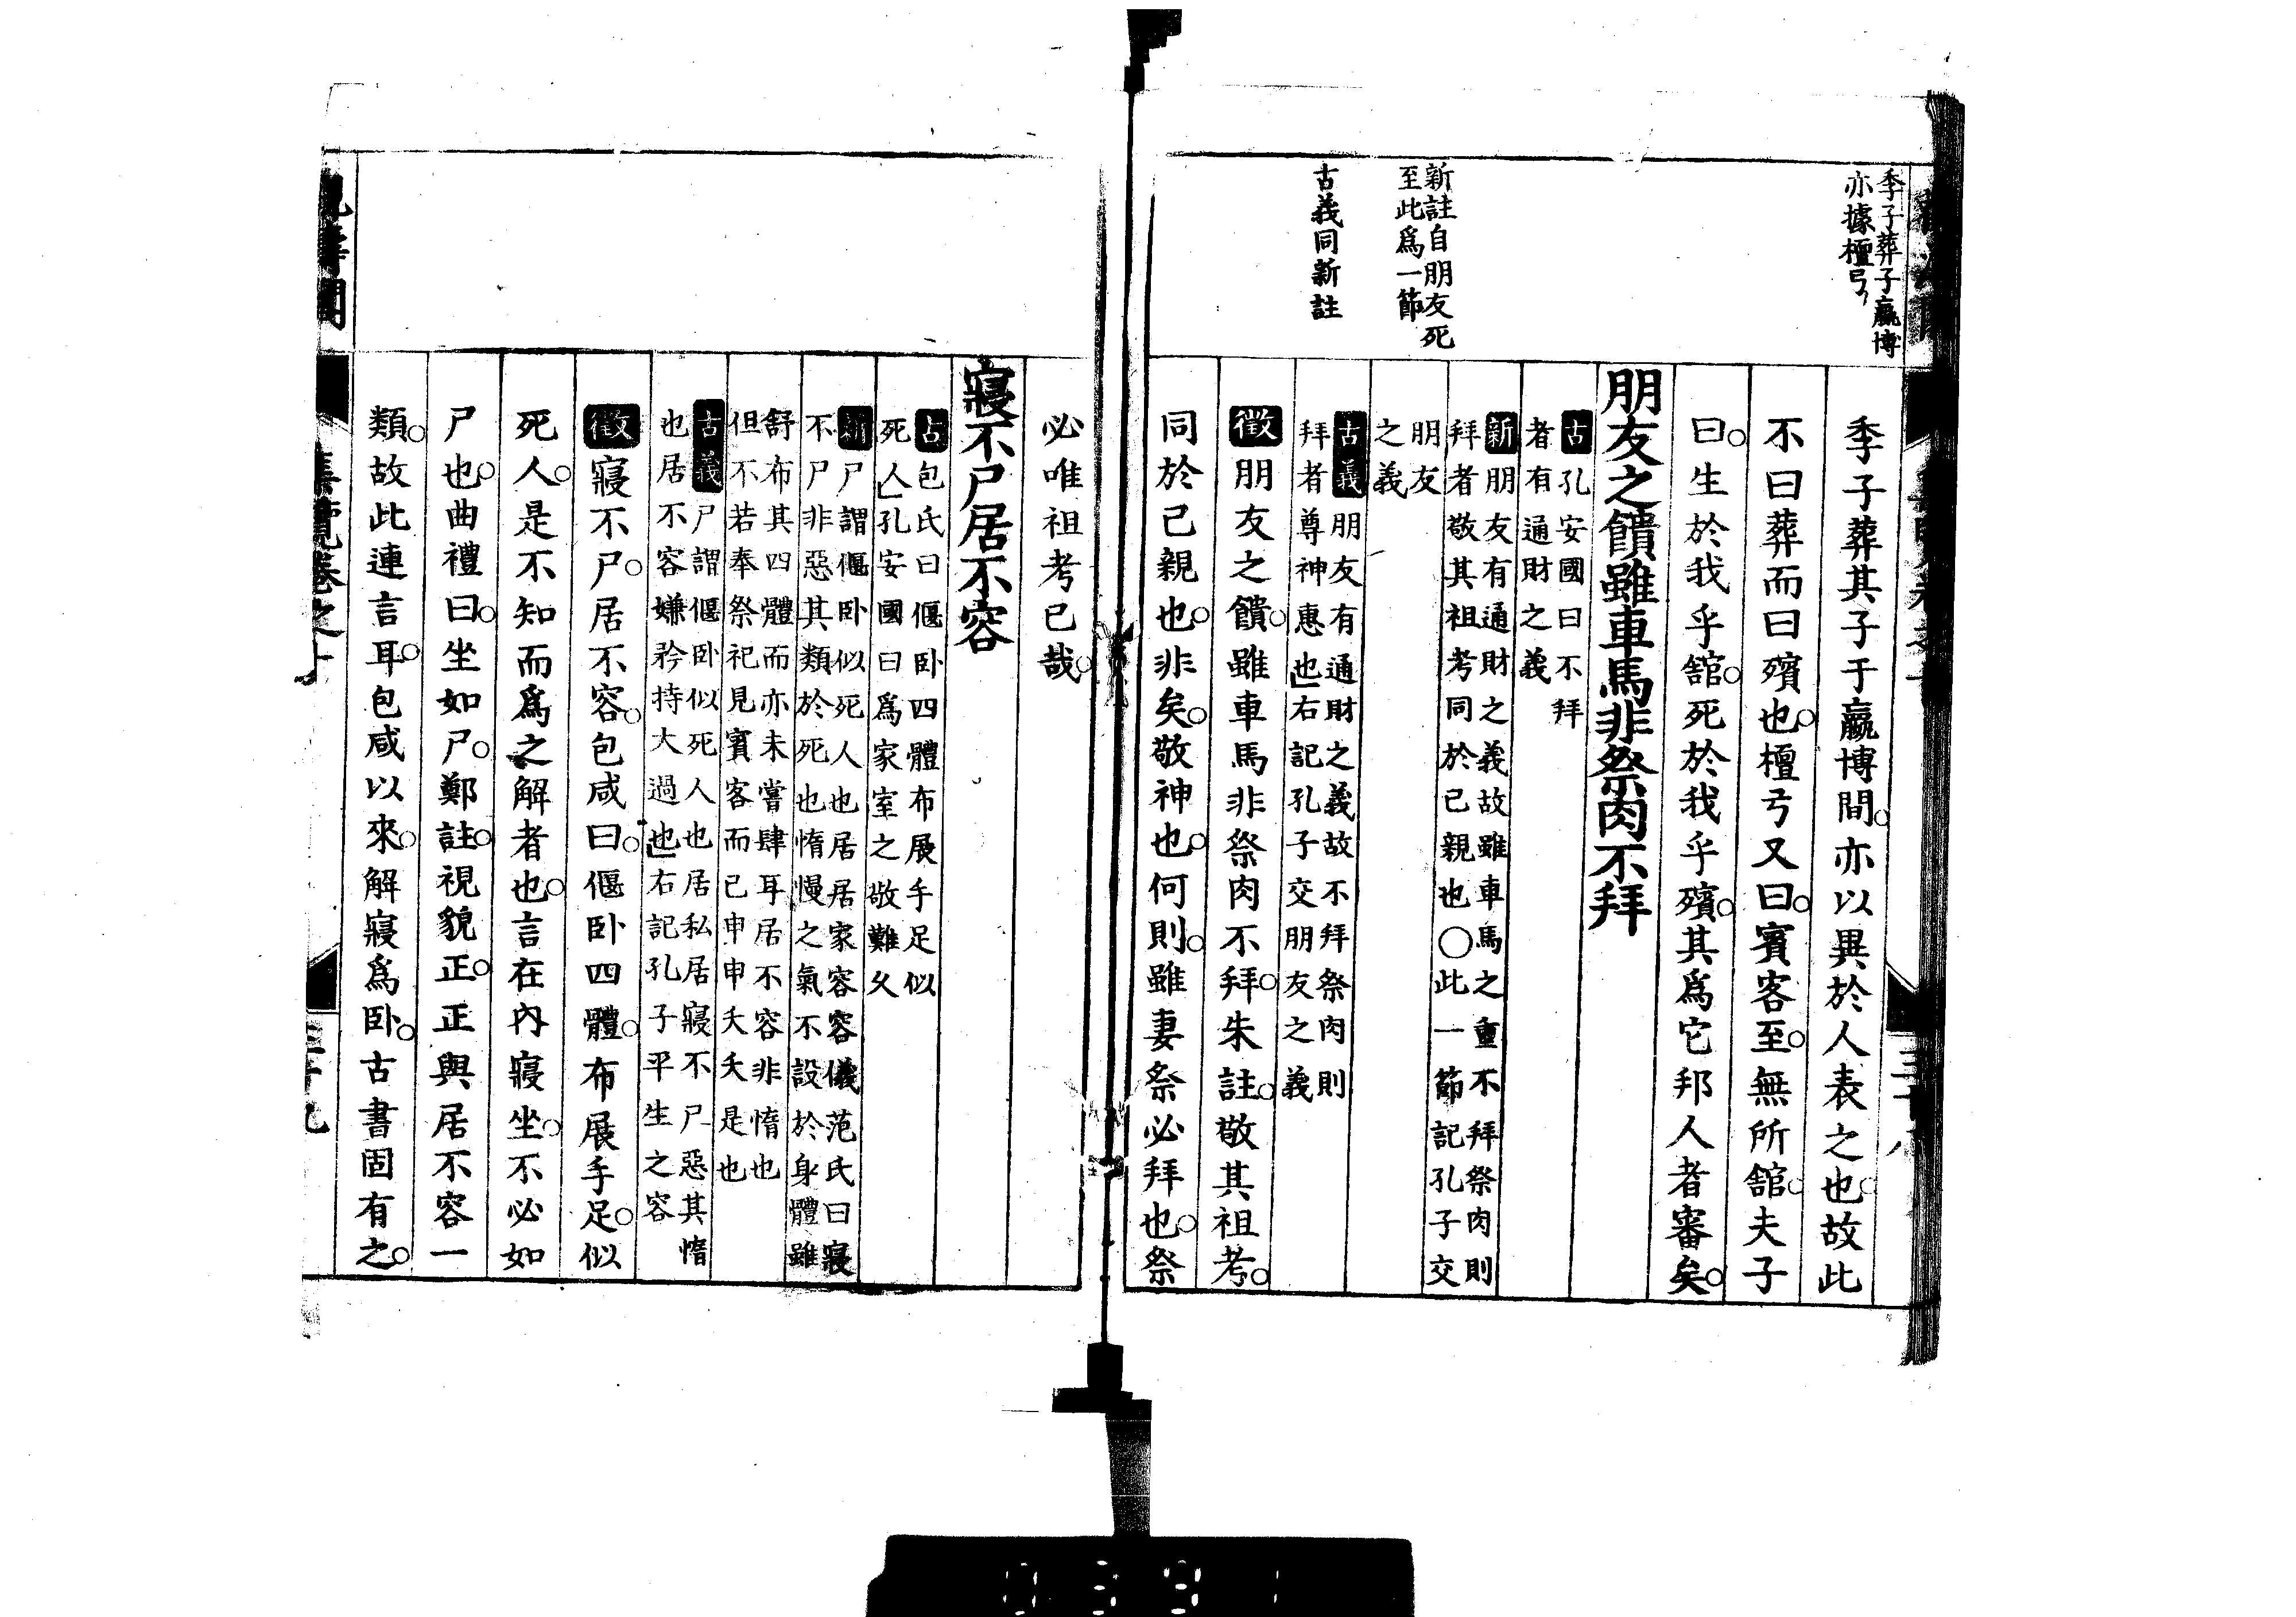 季子葬子嬴博
亦據檀弓
新註自朋友死
至此爲一節
古義同新註
季子葬其子于嬴博間。亦以異於人表之也。故此
不曰葬而曰殯也。檀弓又曰。賓客至。無所舘。夫子
曰。生於我乎舘。死於我乎殯。其爲它邦人者審矣。
朋友之饋雖車馬非祭肉不拜
古孔安國曰不拜
者有通財之義
新朋友有通財之義故雖車馬之重不拜祭肉則
拜者敬其祖考同於己親也○此一節記孔子交
朋友
之義
古義朋友有通財之義故不拜祭肉則
拜者尊神惠也」右記孔子交朋友之義
徵朋友之饋。雖車馬非祭肉不拜。朱註。敬其祖考。
同於己親也。非矣。敬神也。何則。雖妻祭必拜也。祭
必唯祖考已哉。
寢不尸居不容
古包氏曰偃卧四體布展手足似
死人」孔安國曰爲家室之敬難久
新尸謂偃卧似死人也居居家容容儀范氏曰寢
不尸非惡其類於死也惰慢之氣不設於身體雖
舒布其四體而亦未嘗肆耳居不容非惰也
但不若奉祭祀見賓客而已申申夭夭是也
古義尸謂偃卧似死人也居私居寢不尸惡其惰
也居不容嫌矜持大過也」右記孔子平生之容
徵寢不尸。居不容。包咸曰。偃卧四體。布展手足。似
死人。是不知而爲之解者也。言在內寢坐。不必如
尸也。曲禮曰。坐如尸。鄭註。視貌正。正與居不容一
類。故此連言耳。包咸以來。解寢爲卧。古書固有之。
集覽卷之十
三十九
0391